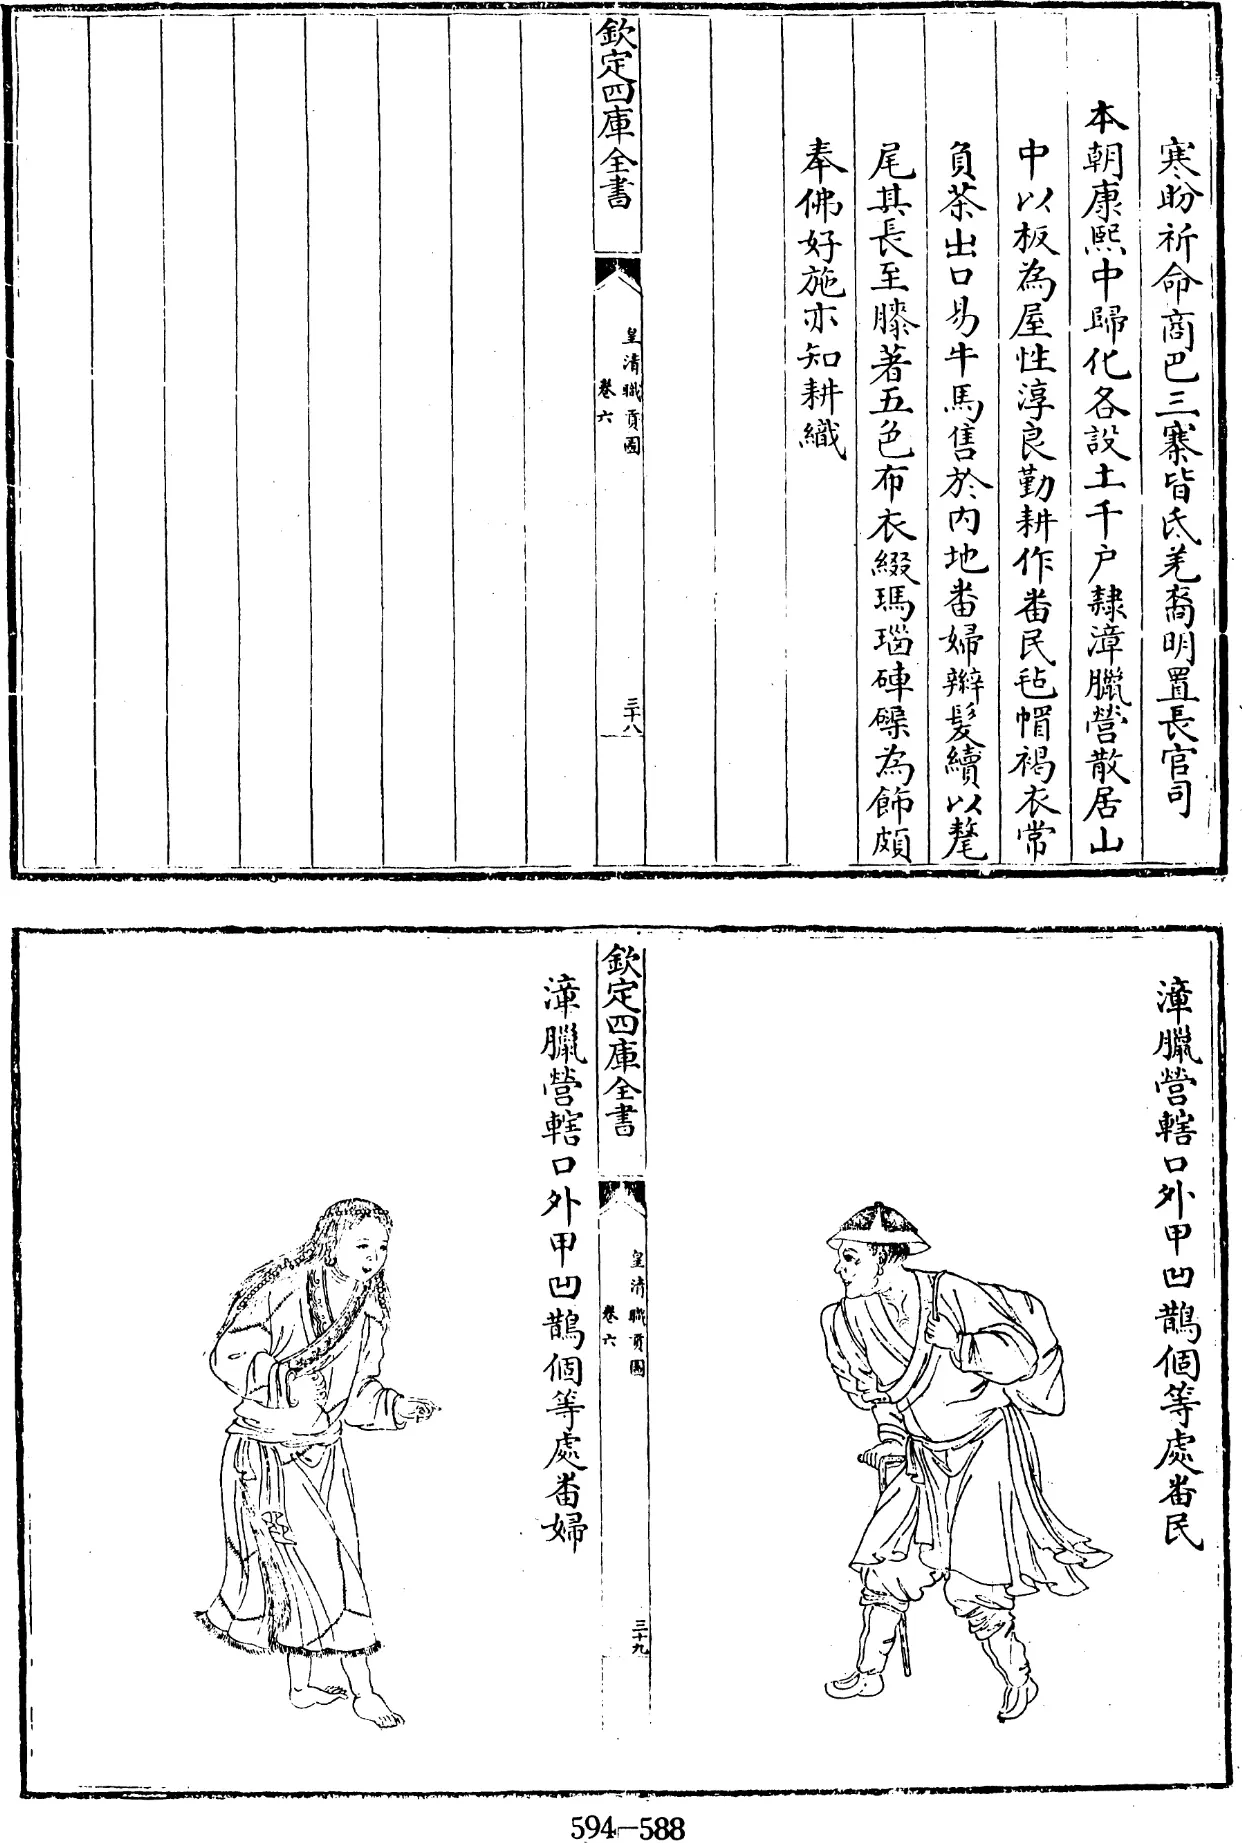 寒盼祈命商巴三寨皆氐羌裔明置長官司
本朝康熙中歸化各設土千戶隸漳臘營散居山
中以板為屋性淳良勤耕作番民毡帽褐衣常
負茶出口易牛馬售於內地番婦辮髮續以氂
尾其長至膝著五色布衣綴瑪瑙硨磲為飾頗
奉佛好施亦知耕織
欽定四庫全書
皇清職貢圖
卷六
三十八
漳臘營轄口外甲凹鵲個等處番民
欽定四庫全書
皇清職貢圖
卷六
三十九
漳臘營轄口外甲凹鵲個等處番婦
594-588